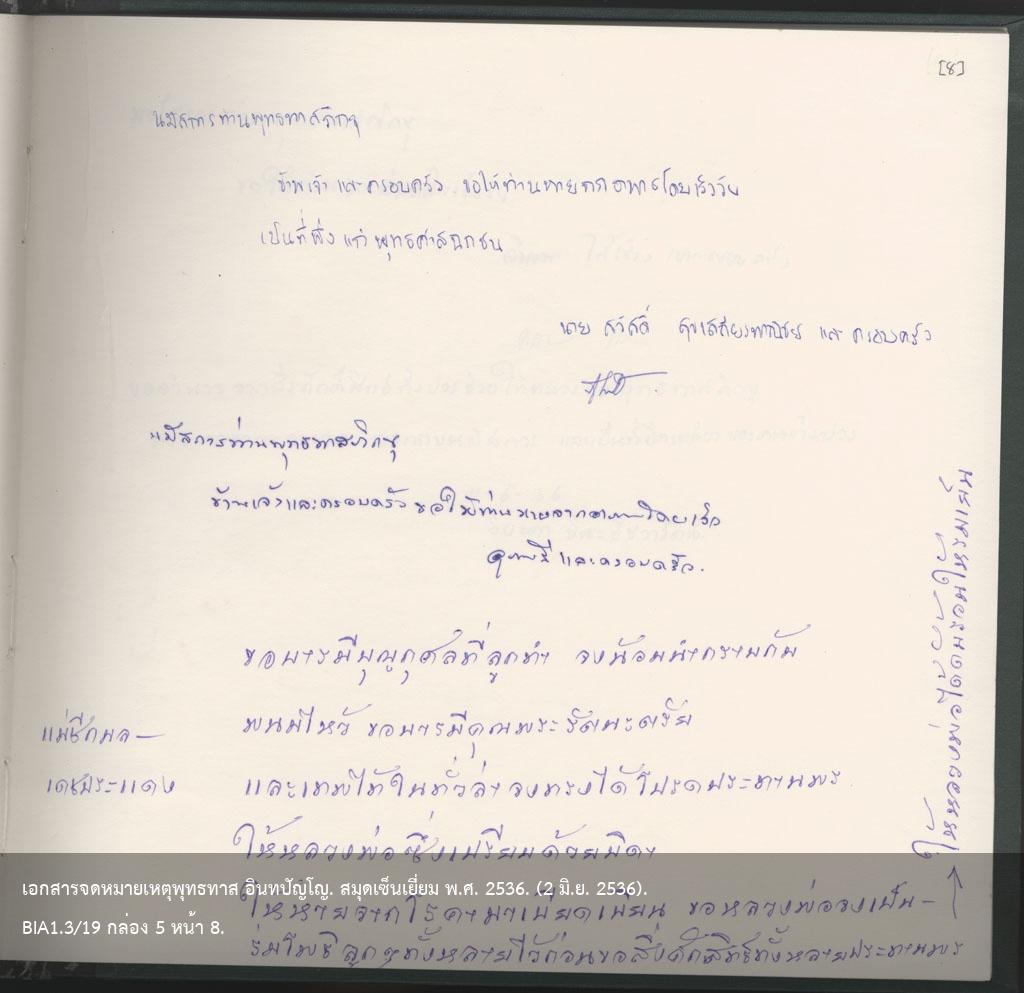 [๘]
นมัสการท่านพุทธทาสภิกขุ
ข้าพเจ้า และครอบครัว ขอให้ท่านหายจากอาพาธโดยเร็ววัน
เป็นที่พึ่ง แก่ พุทธศาสนิกชน
นาย สวัสดิ์ และ ครอบครัว
นมัสการท่านพุทธทาสภิกขุ
ข้าพเจ้าและครอบครัว ขอให้ท่านหายจากอาพาธโดยเร็ว
และครอบครัว.
ขอบารมีบุญกุศลที่ลูกทำ จงน้อมนำกราบก้ม
พนมไหว้ ขอบารมีคุณพระรัตนะตรัย
แม่ชีกมล—
เดชประแดง
และเทพไท้ในทั่วล่า จงทรงได้โปรดประทานพร
ให้หลวงพ่อซึ่งเปรียบด้วยบิดา
ให้หายจากโรคามาเบียดเบียน ขอหลวงพ่อจงเป็น—
ร่มโพธิลูกๆทั้งหลายไว้ก่อนขอสิ่งศักสิทธิ์ทั้งหลายประทานพร
→ ให้หลวงพ่อ
เอกสารจดหมายเหตุพุทธทาส อินทปัญโญ. สมุดเซ็นเยี่ยม พ.ศ. 2536. (2 มิ.ย. 2536).
BIA1.3/19 กล่อง 5 หน้า 8.